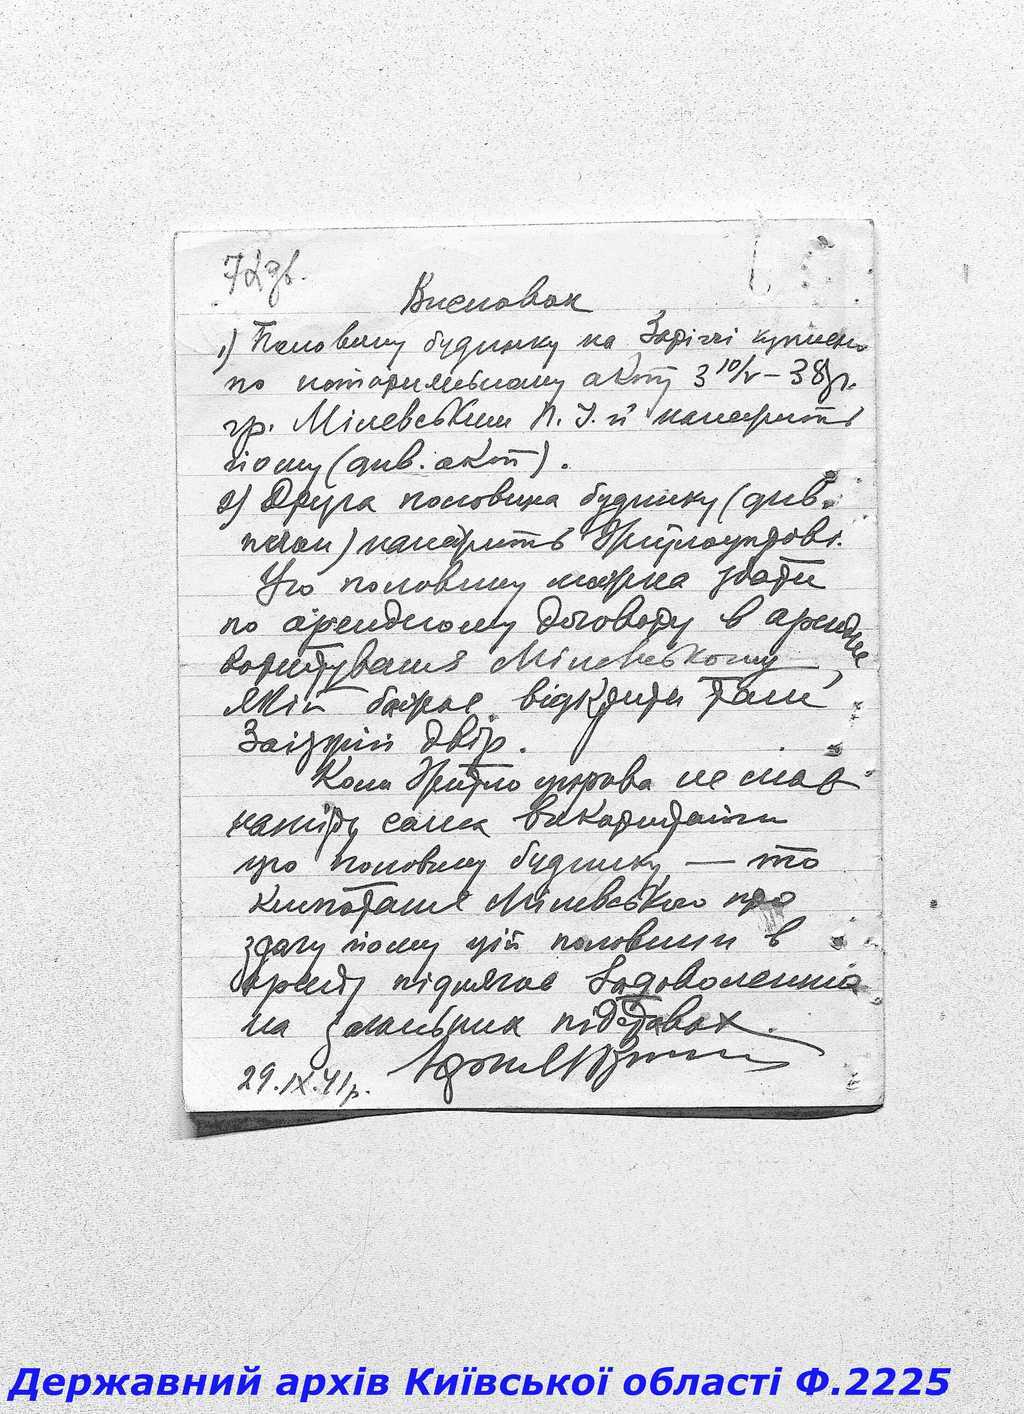 Висновок
1) Половину будинку на Заріччі куплено
по нотаріяльному акту з 10/V – 38 р.
гр. Мілевським П. І. й належить
йому (див. акт).
2) Друга половина будинку (див.
план) належить Житлоуправі.
Цю половину можна здати
по арендному договору в арендне
користування Мілевському,
який бажає відкрити там
Заїзжий двір.
Коли Житлоуправа не має
наміру сама використати
цю половину будинку — то
клопотання Мілевського про
здачу йому цій половини в
аренду підлягає задоволенню
на загальних підставах.
29.IX.41р.
Державний архів Київської області Ф.2225